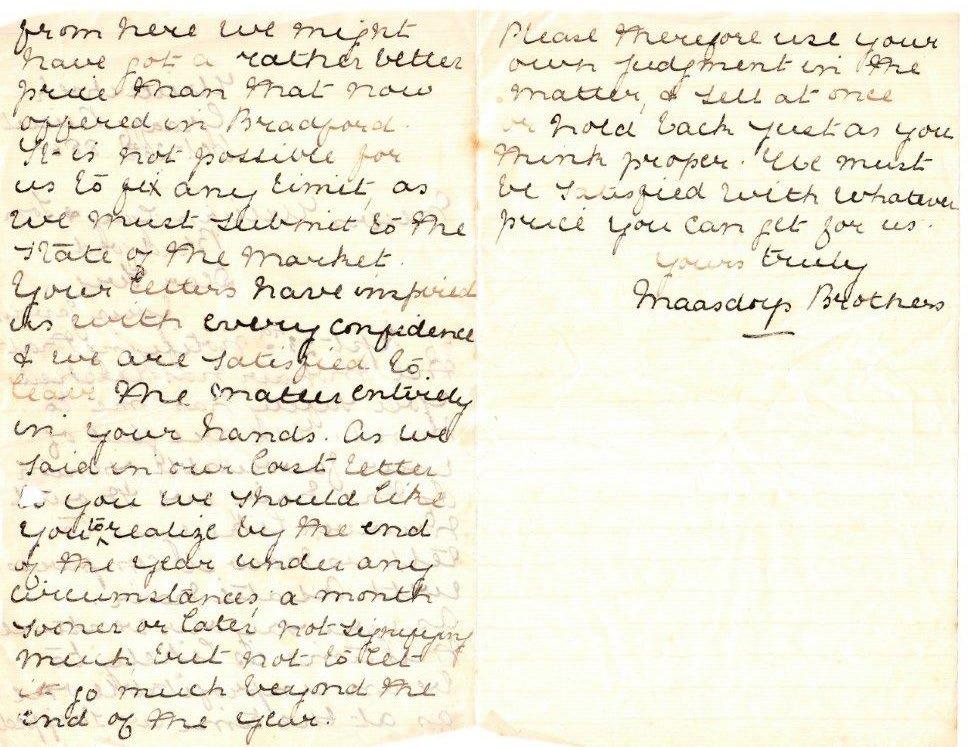 from here we might
have got a rather better
price than that now
offered in Bradford.
It is not possible for
us to fix any limit, as
we must submit to the
state of the market.
Your letters have inspired
us with every confidence
& we are satisfied to
leave the matter entirely
in your hands. As we
said in our last letter
to you we should like
you to realize by the end
of the year under any
circumstances, a month
sooner or later not signifying
much but not to let
it go much beyond the
end of the year.
Please therefore use your
own judgment in the
matter, & sell at once
or hold back just as you
think proper. We must
be satisfied with whatever
price you can get for us.
Yours truly
Maasdorp Brothers